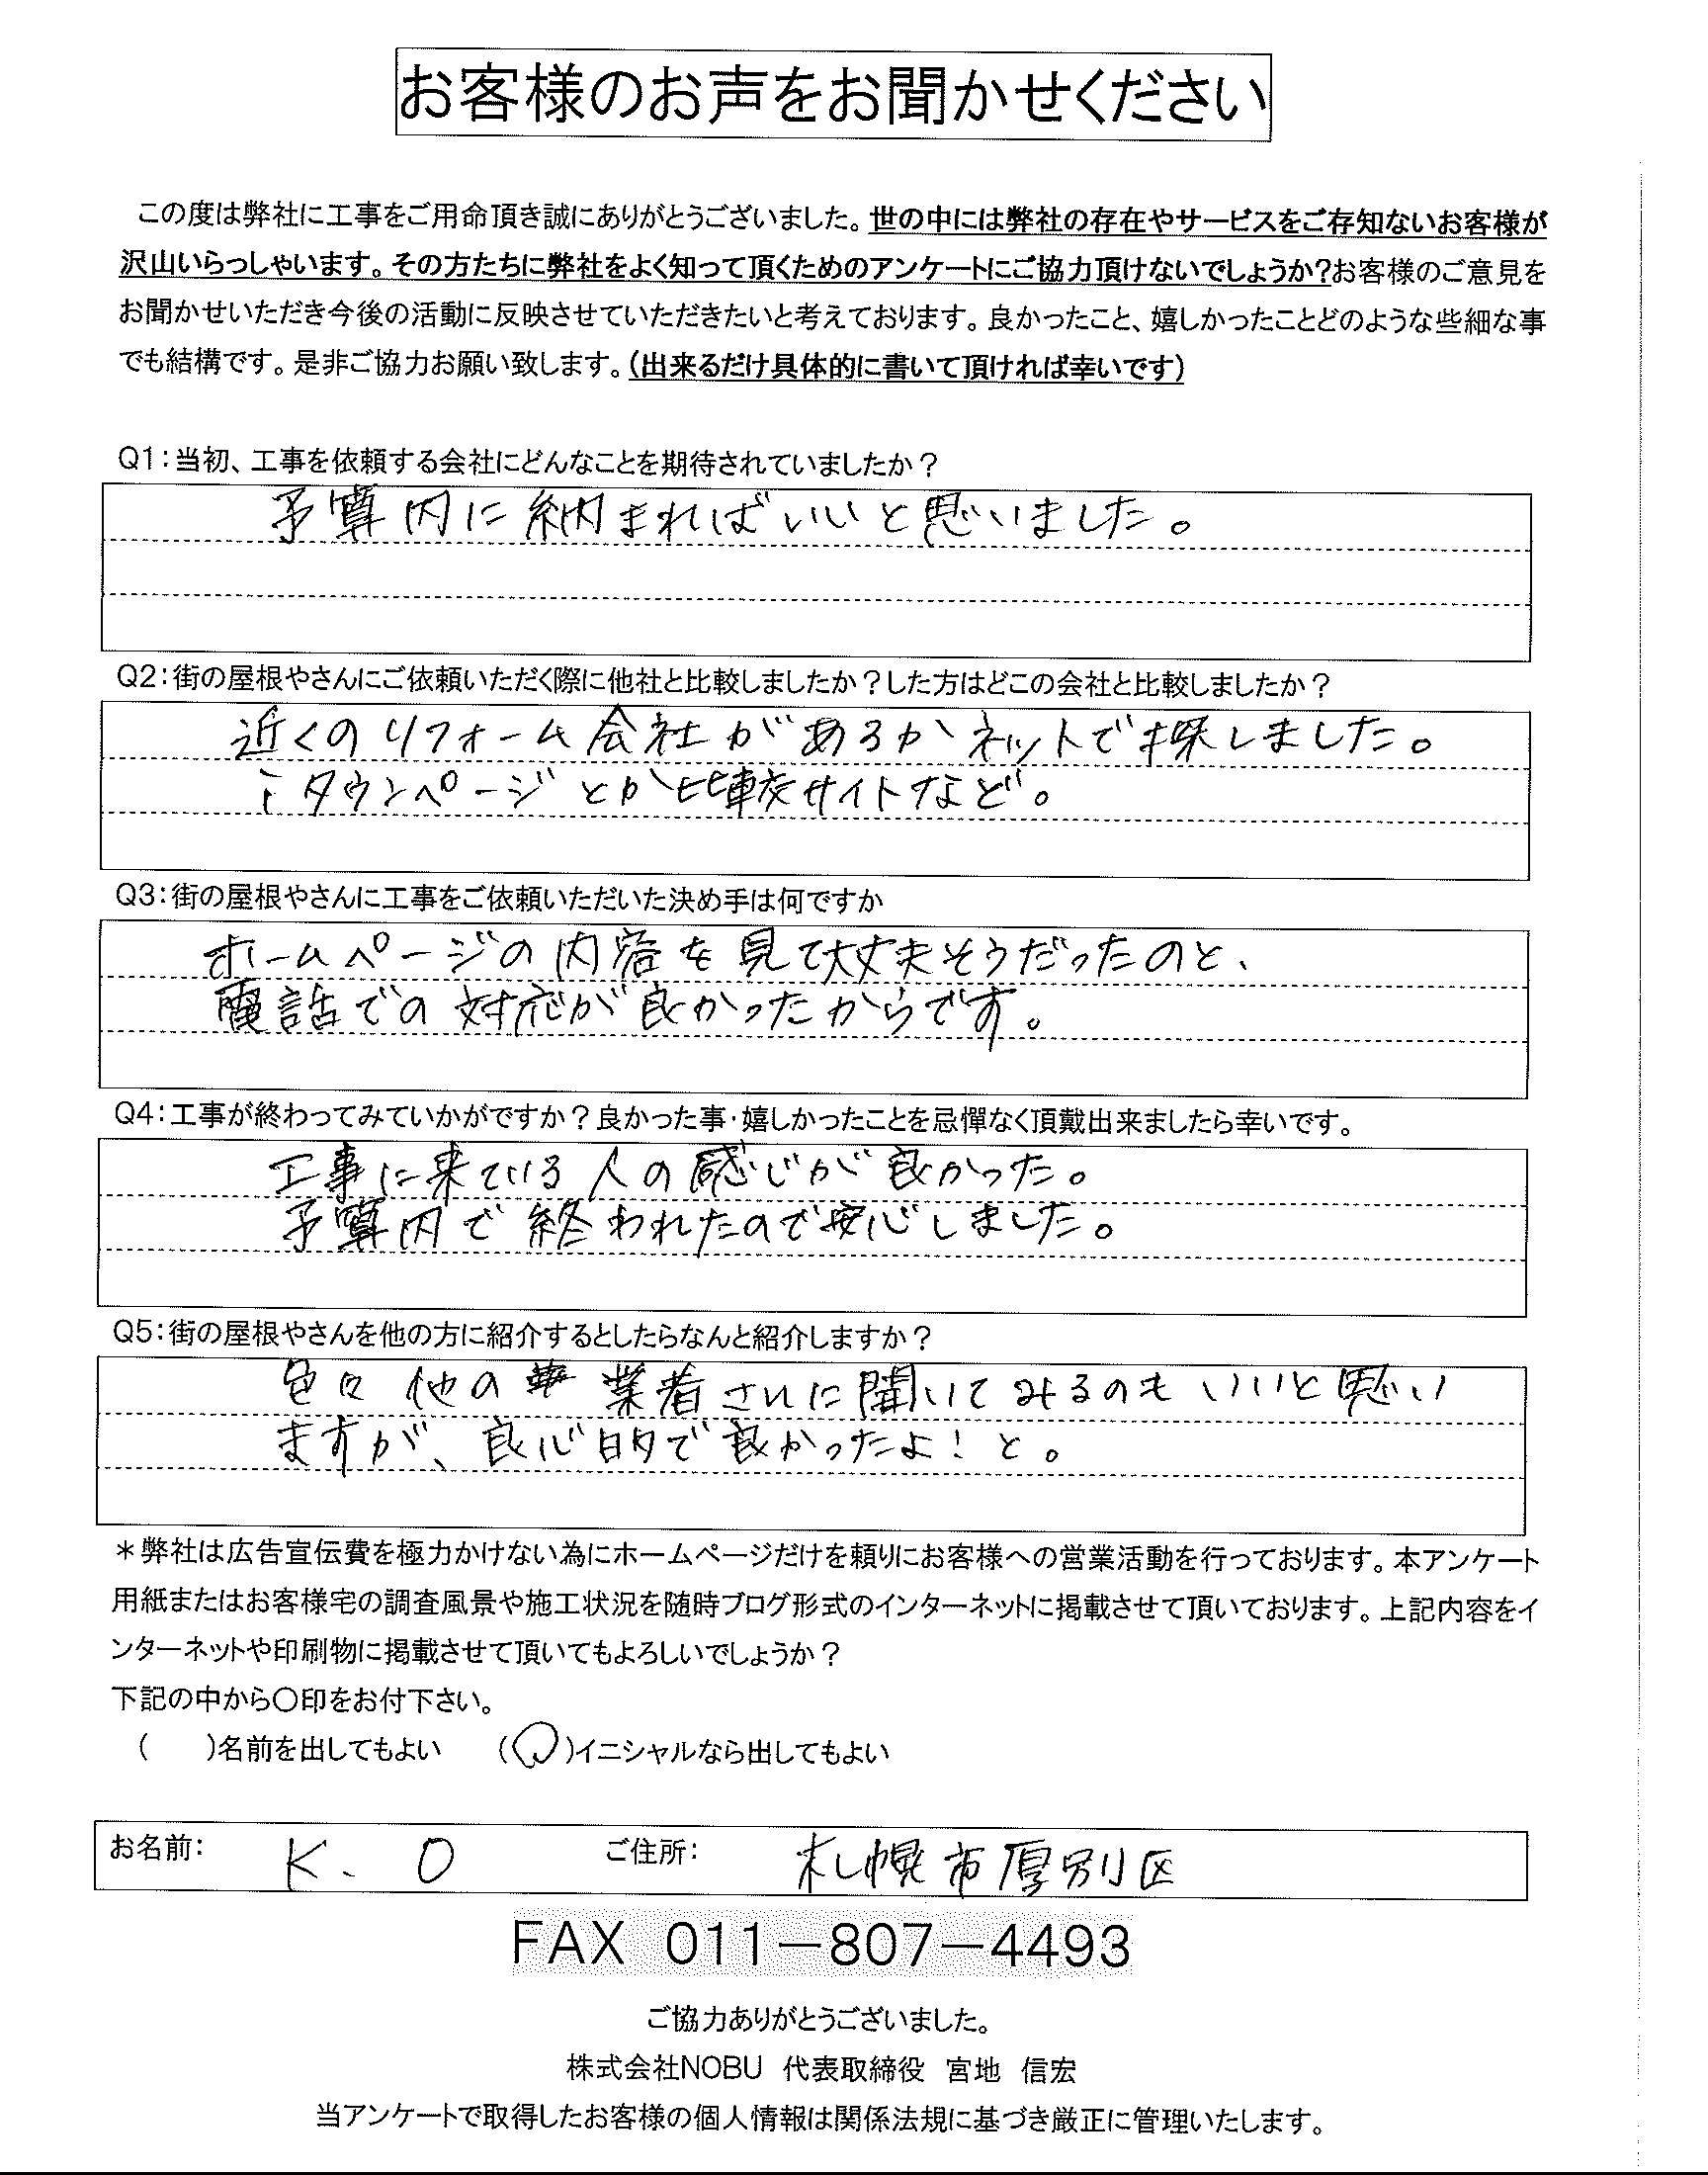 お客様のお声をお聞かせください
この度は弊社に工事をご用命頂き誠にありがとうございました。世の中には弊社の存在やサービスをご存知ないお客様が
沢山いらっしゃいます。その方たちに弊社をよく知って頂くためのアンケートにご協力頂けないでしょうか?お客様のご意見を
お聞かせいただき今後の活動に反映させていただきたいと考えております。良かったこと、嬉しかったことどのような些細な事
でも結構です。是非ご協力お願い致します。(出来るだけ具体的に書いて頂ければ幸いです)
Q1:当初、工事を依頼する会社にどんなことを期待されていましたか?
予算内に納まればいいと思いました。
Q2:街の屋根やさんにご依頼いただく際に他社と比較しましたか?した方はどこの会社と比較しましたか?
近くのリフォーム会社があるかネットで探しました。
iタウンページとか比較サイトなど。
Q3:街の屋根やさんに工事をご依頼いただいた決め手は何ですか
ホームページの内容を見て大丈夫そうだったのと、
電話での対応が良かったからです。
Q4:工事が終わってみていかがですか?良かった事・嬉しかったことを忌憚なく頂戴出来ましたら幸いです。
工事に来ている人の感じが良かった。
予算内で終われたので安心しました。
Q5:街の屋根やさんを他の方に紹介するとしたらなんと紹介しますか?
色々他の業者さんに聞いてみるのもいいと思い
ますが、良心的で良かったよ!と。
*弊社は広告宣伝費を極力かけない為にホームページだけを頼りにお客様への営業活動を行っております。本アンケート
用紙またはお客様宅の調査風景や施工状況を随時ブログ形式のインターネットに掲載させて頂いております。上記内容をイ
ンターネットや印刷物に掲載させて頂いてもよろしいでしょうか?
下記の中から○印をお付下さい。
( )名前を出してもよい (○)イニシャルなら出してもよい
お名前: K.O ご住所: 札幌市厚別区
FAX 011-807-4493
ご協力ありがとうございました。
株式会社NOBU 代表取締役 宮地 信宏
当アンケートで取得したお客様の個人情報は関係法規に基づき厳正に管理いたします。